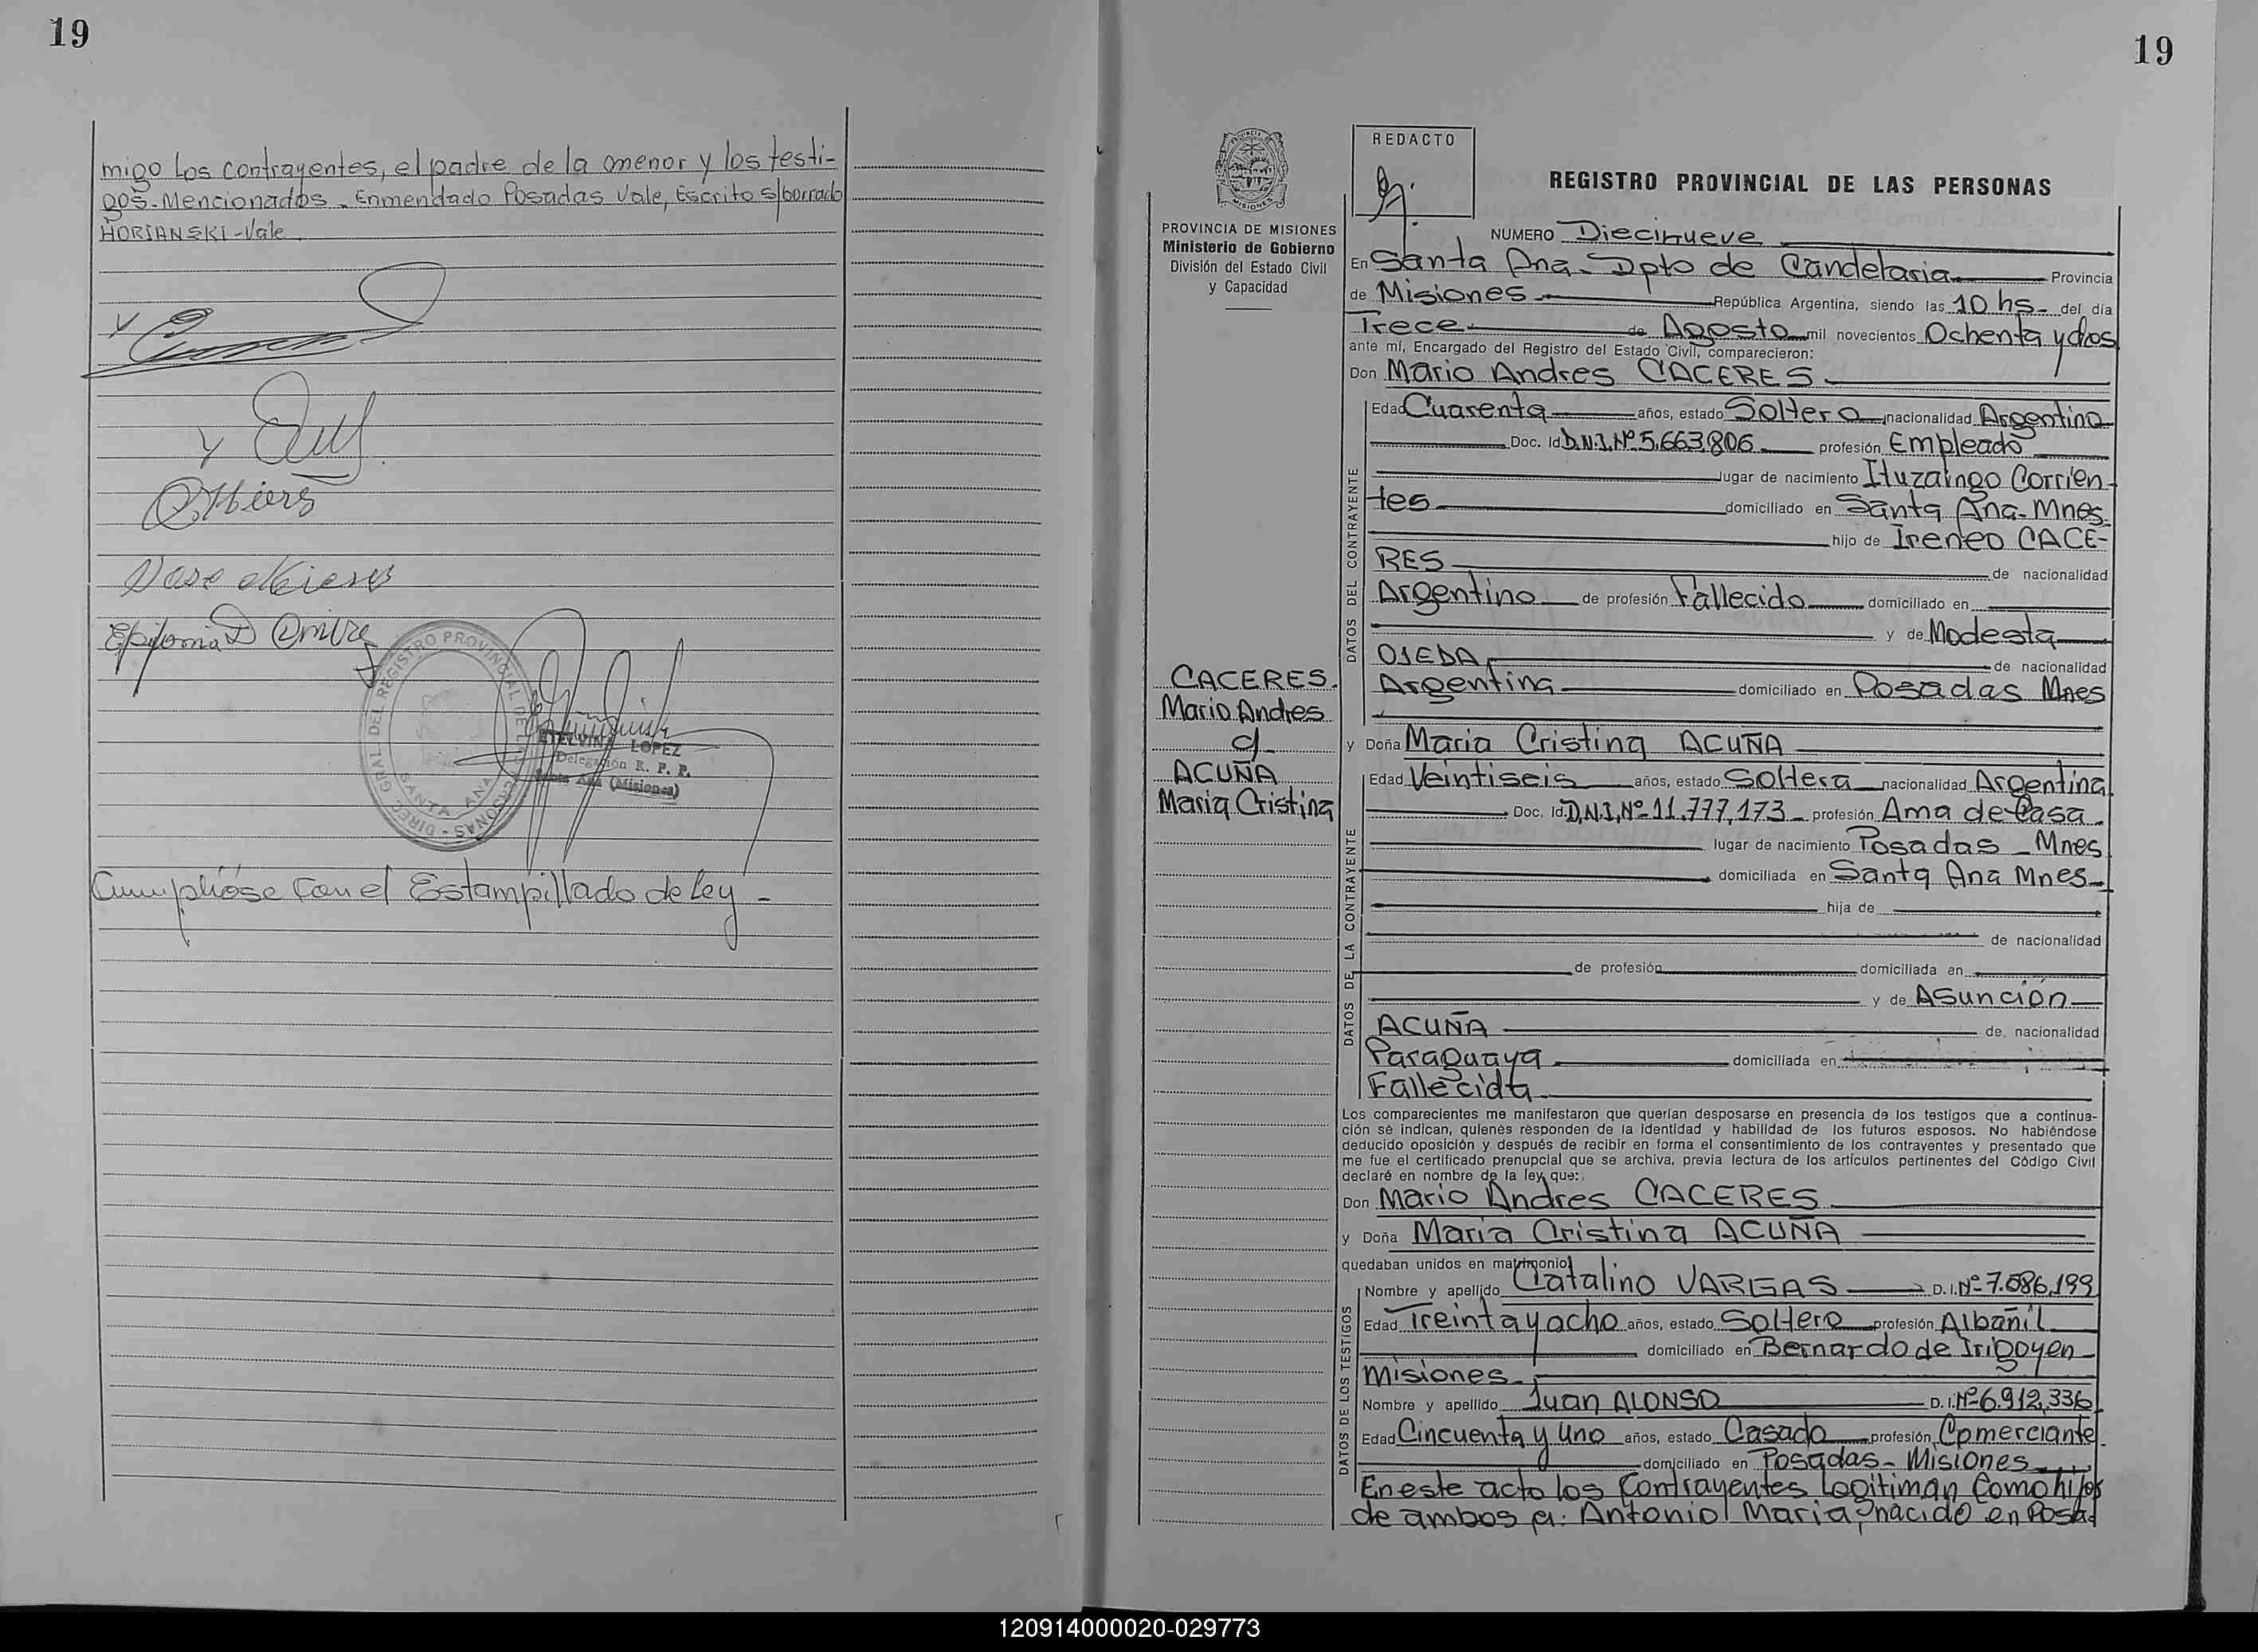 19
migo los contrayentes, el padre de la menor y los testi-
gos - Mencionados - Enmendado Posadas Vale, Escrito s/borrado
HORIANSKI - Vale
DIREC. GRAL. DEL REGISTRO PROVINCIAL DE LAS PERSONAS -
SANTA ANA
ETELVINA LOPEZ
Delegación R. P. P.
Santa Ana (Misiones)
Cumplióse con el Estampillado de Ley -
19
PROVINCIA DE MISIONES
Ministerio de Gobierno
División del Estado Civil
y Capacidad
CACERES
Mario Andres
c/
ACUÑA
Maria Cristina
REDACTO
REGISTRO PROVINCIAL DE LAS PERSONAS
NUMERO Diecinueve
En Santa Ana - Dpto de Candelaria Provincia
de Misiones República Argentina, siendo las 10 hs - del día
Trece de Agosto mil novecientos Ochenta y dos
ante mí, Encargado del Registro del Estado Civil, comparecieron:
Don Mario Andres CACERES
DATOS DEL CONTRAYENTE
Edad Cuarenta años, estado Soltero nacionalidad Argentina
Doc. Id D.N.I. Nº 5.663.806 profesión Empleado
lugar de nacimiento Ituzaingo Corrien-
tes domiciliado en Santa Ana - Mnes
hijo de Ireneo CACE-
RES de nacionalidad
Argentino de profesión Fallecido domiciliado en
y de Modesta
OJEDA de nacionalidad
Argentina domiciliado en Posadas Mnes
y Doña Maria Cristina ACUÑA
DATOS DE LA CONTRAYENTE
Edad Veintiseis años, estado Soltera nacionalidad Argentina
Doc. Id. D.N.I. Nº 11.777.173 profesión Ama de Casa
lugar de nacimiento Posadas - Mnes
domiciliada en Santa Ana Mnes
hija de
de nacionalidad
de profesión domiciliada en
y de Asunción
ACUÑA de nacionalidad
Paraguaya domiciliada en
Fallecida
Los comparecientes me manifestaron que querían desposarse en presencia de los testigos que a continua-
ción se indican, quienes responden de la identidad y habilidad de los futuros esposos. No habiéndose
deducido oposición y después de recibir en forma el consentimiento de los contrayentes y presentado que
me fue el certificado prenupcial que se archiva, previa lectura de los artículos pertinentes del Código Civil
declaré en nombre de la ley que:
Don Mario Andres CACERES
y Doña Maria Cristina ACUÑA
quedaban unidos en matrimonio
DATOS DE LOS TESTIGOS
Nombre y apellido Catalino VARGAS D. I. Nº 7.086.199
Edad Treinta y ocho años, estado Soltero profesión Albañil
domiciliado en Bernardo de Irigoyen
Misiones
Nombre y apellido Juan ALONSO D. I. Nº 6.912.336
Edad Cincuenta y uno años, estado Casado profesión Comerciante
domiciliado en Posadas - Misiones
En este acto los Contrayentes Legitiman Como hijos
de ambos a: Antonio Maria, nacido en Posad
120914000020-029773